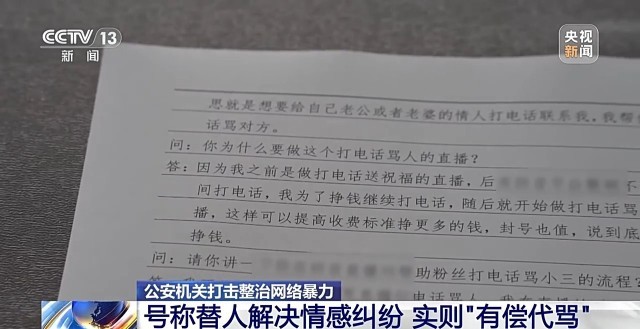 CCTV 13
新闻
央视
新闻
思就是想要给自己老公或者老婆的情人打电话联系我，我帮
话骂对方。
问：你为什么要做这个打电话骂人的直播？
答：因为我之前是做打电话送祝福的直播，后
间打电话，我为了挣钱继续打电话，随后就开始做打电话骂
播，这样可以提高收费标准挣更多的钱，封号也值，说到底
挣钱。
问：请你讲一
助粉丝打电话骂小三的流程？
公安机关打击整治网络暴力
号称替人解决情感纠纷 实则"有偿代骂"